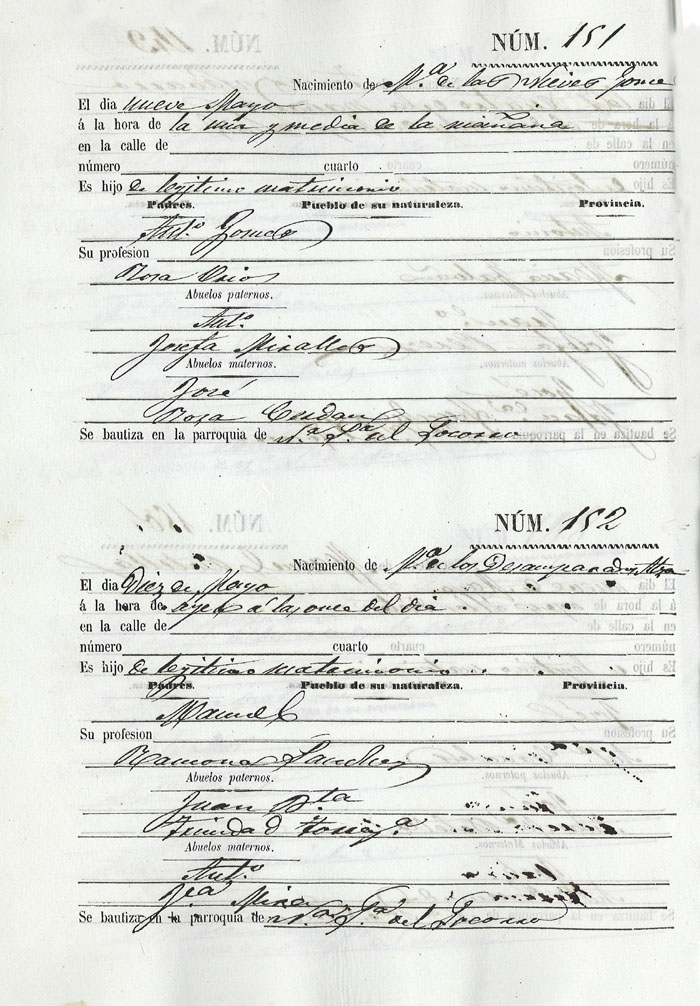 NÚM. 151
Nacimiento de M.ª de las Nieves Gome
El dia nueve Mayo
á la hora de la una y media de la mañana
en la calle de
número cuarto
Es hijo de legitimo matrimonio
Padres. Pueblo de su naturaleza. Provincia.
Ant.º Gomes
Su profesion
Rosa
Abuelos paternos.
Ant.º
Josefa Miralles
Abuelos maternos.
José
Rosa Cerdan
Se bautiza en la parroquia de N.ª S.ª del Socorro
NÚM. 152
Nacimiento de M.ª de los Desamparados
El dia Diez de Mayo
á la hora de ayer á las once del dia
en la calle de
número cuarto
Es hijo de legitimo matrimonio
Padres. Pueblo de su naturaleza. Provincia.
Manuel
Su profesion
Ramona Sanchez
Abuelos paternos.
Juan B.ta
Trinidad
Abuelos maternos.
Ant.º
Mira
Se bautiza en la parroquia de N.ª S.ª del Socorro